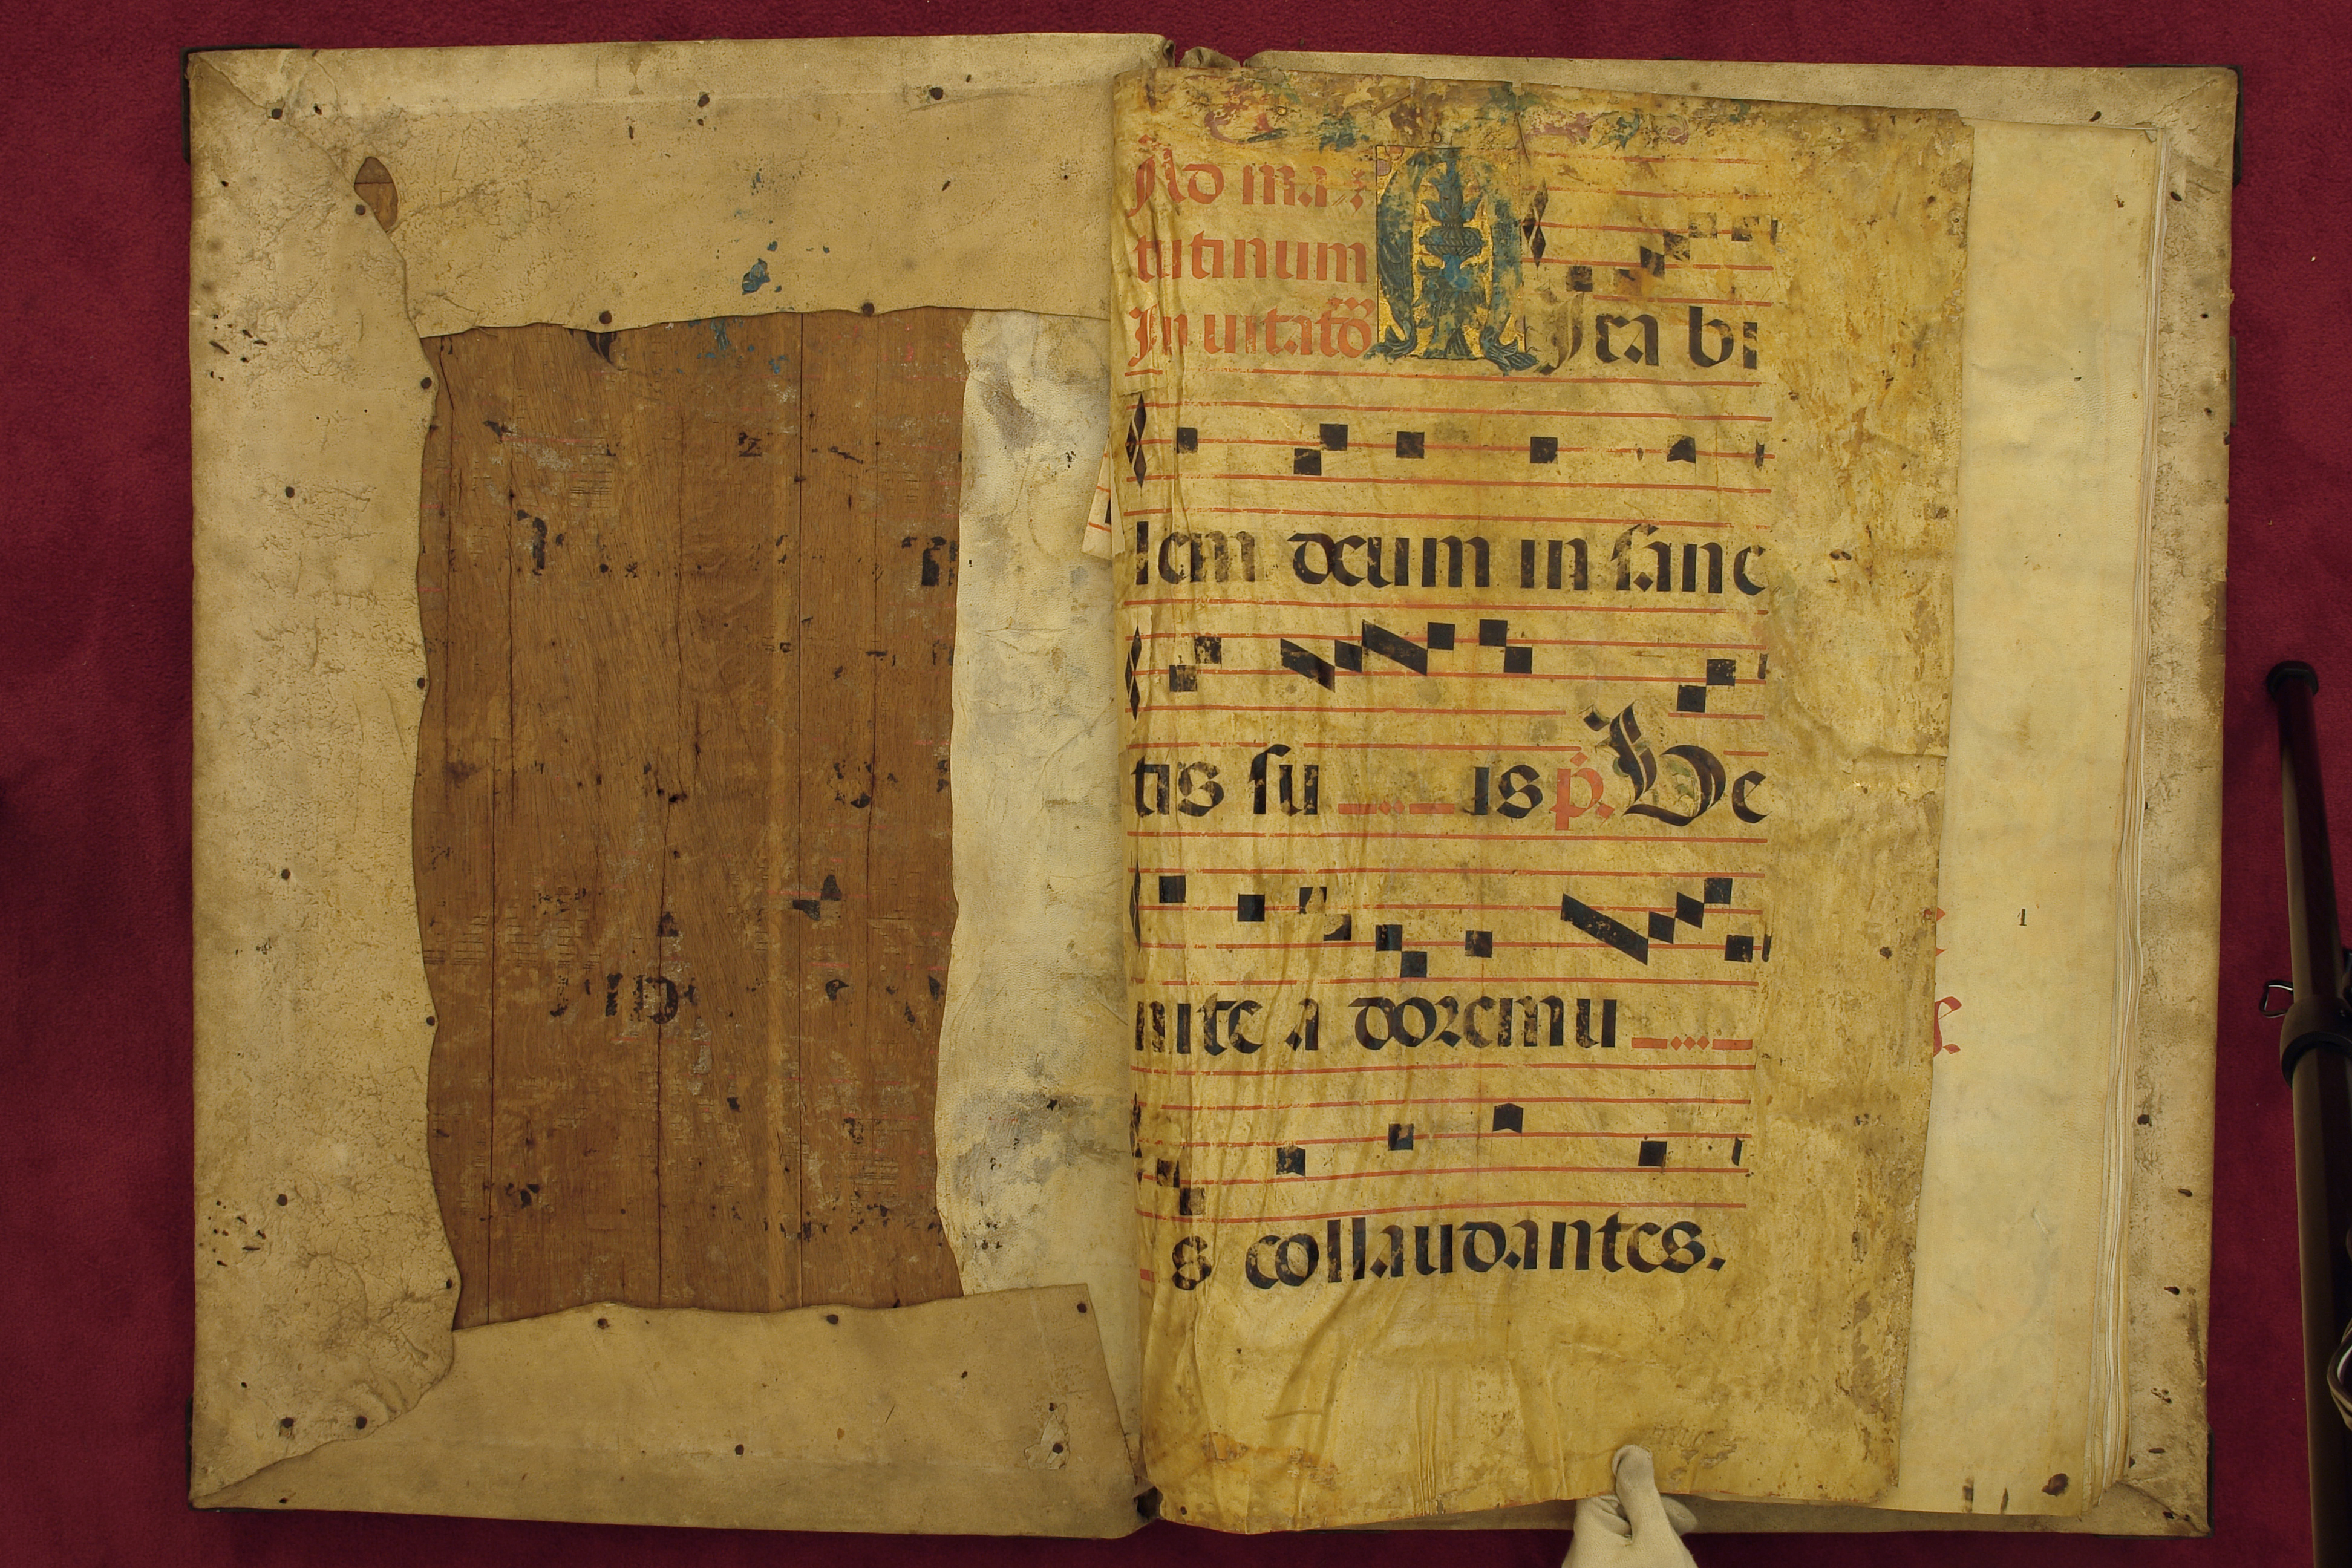 Ad ma
tutinum
In uitato
M Ira bi
lem deum in sanc
tis su is p. Ve
nite a doremu
s collaudantes.
1